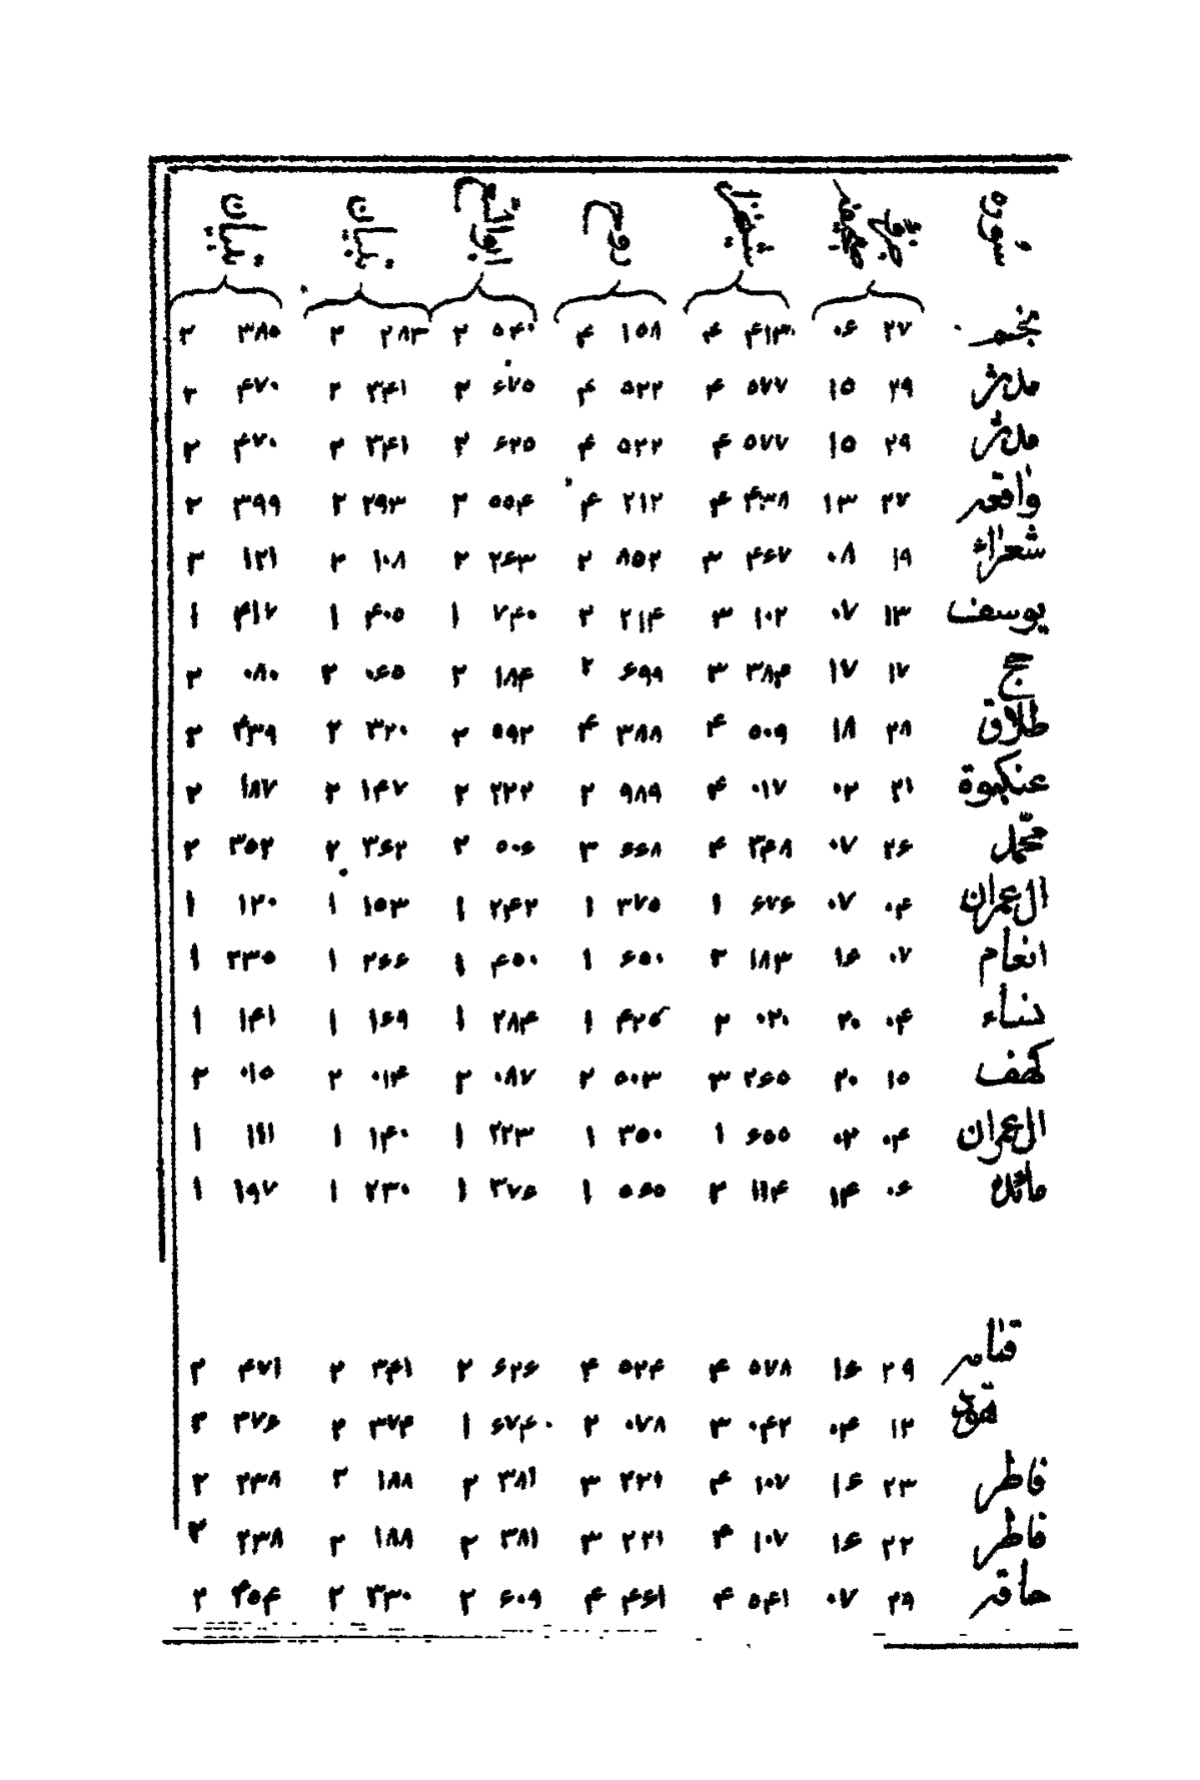 سوره جزو صفحه شیخزاده روح ابوالفتح تبیان تبیان
نجم ۲۷ ۰۶ ۴۱۳ ۴ ۱۵۸ ۴ ۵۴۰ ۲ ۲۸۳ ۲ ۳۸۵ ۲
مدثر ۲۹ ۱۵ ۵۷۷ ۴ ۵۲۲ ۴ ۶۷۵ ۲ ۳۴۱ ۲ ۴۷۰ ۲
مدثر ۲۹ ۱۵ ۵۷۷ ۴ ۵۲۲ ۴ ۶۲۵ ۲ ۳۴۱ ۲ ۴۷۰ ۲
واقعه ۲۷ ۱۳ ۴۳۸ ۴ ۲۱۲ ۴ ۵۵۴ ۲ ۲۹۳ ۲ ۳۹۹ ۲
شعراء ۱۹ ۰۸ ۴۶۷ ۳ ۸۵۲ ۲ ۲۶۳ ۲ ۱۰۸ ۲ ۱۲۱ ۲
یوسف ۱۳ ۰۷ ۱۰۲ ۳ ۲۱۴ ۲ ۷۴۰ ۱ ۴۰۵ ۱ ۴۱۷ ۱
حج ۱۷ ۱۷ ۳۸۴ ۳ ۶۹۹ ۲ ۱۸۴ ۲ ۰۶۵ ۲ ۰۸۰ ۲
طلاق ۲۸ ۱۸ ۵۰۹ ۴ ۳۸۸ ۴ ۵۹۲ ۲ ۳۲۰ ۲ ۴۳۹ ۲
عنکبوة ۲۱ ۰۲ ۰۱۷ ۴ ۹۸۹ ۲ ۲۲۲ ۲ ۱۴۷ ۲ ۱۸۷ ۲
محمد ۲۶ ۰۷ ۳۴۸ ۴ ۶۶۸ ۳ ۵۰۶ ۲ ۳۶۲ ۲ ۳۵۲ ۲
ال عمران ۰۴ ۰۷ ۶۷۶ ۱ ۳۷۵ ۱ ۲۴۲ ۱ ۱۵۳ ۱ ۱۲۰ ۱
انعام ۰۷ ۱۶ ۱۸۳ ۲ ۶۵۰ ۱ ۴۵۰ ۱ ۲۶۶ ۱ ۲۳۵ ۱
نساء ۰۴ ۲۰ ۰۲۰ ۲ ۴۲۵ ۱ ۲۸۴ ۱ ۱۶۹ ۱ ۱۴۱ ۱
کهف ۱۵ ۲۰ ۲۶۵ ۳ ۵۰۳ ۲ ۰۸۷ ۲ ۰۱۴ ۲ ۰۱۵ ۲
ال عمران ۰۴ ۰۲ ۶۵۵ ۱ ۳۵۰ ۱ ۲۲۳ ۱ ۱۴۰ ۱ ۱۱۱ ۱
مائده ۰۶ ۱۴ ۱۱۴ ۲ ۵۶۵ ۱ ۳۷۶ ۱ ۲۳۰ ۱ ۱۹۷ ۱
قیامه ۲۹ ۱۶ ۵۷۸ ۴ ۵۲۴ ۴ ۶۲۶ ۲ ۳۴۱ ۲ ۴۷۱ ۲
هود ۱۲ ۰۴ ۰۴۲ ۳ ۰۷۸ ۲ ۶۷۴ ۱ ۳۷۴ ۲ ۳۷۶ ۲
فاطر ۲۳ ۱۶ ۱۰۷ ۴ ۲۲۱ ۳ ۳۸۱ ۲ ۱۸۸ ۲ ۲۳۸ ۲
فاطر ۲۲ ۱۶ ۱۰۷ ۴ ۲۲۱ ۳ ۳۸۱ ۲ ۱۸۸ ۲ ۲۳۸ ۲
حاقه ۲۹ ۰۷ ۵۴۱ ۴ ۴۶۱ ۴ ۶۰۹ ۲ ۳۳۰ ۲ ۴۵۴ ۲